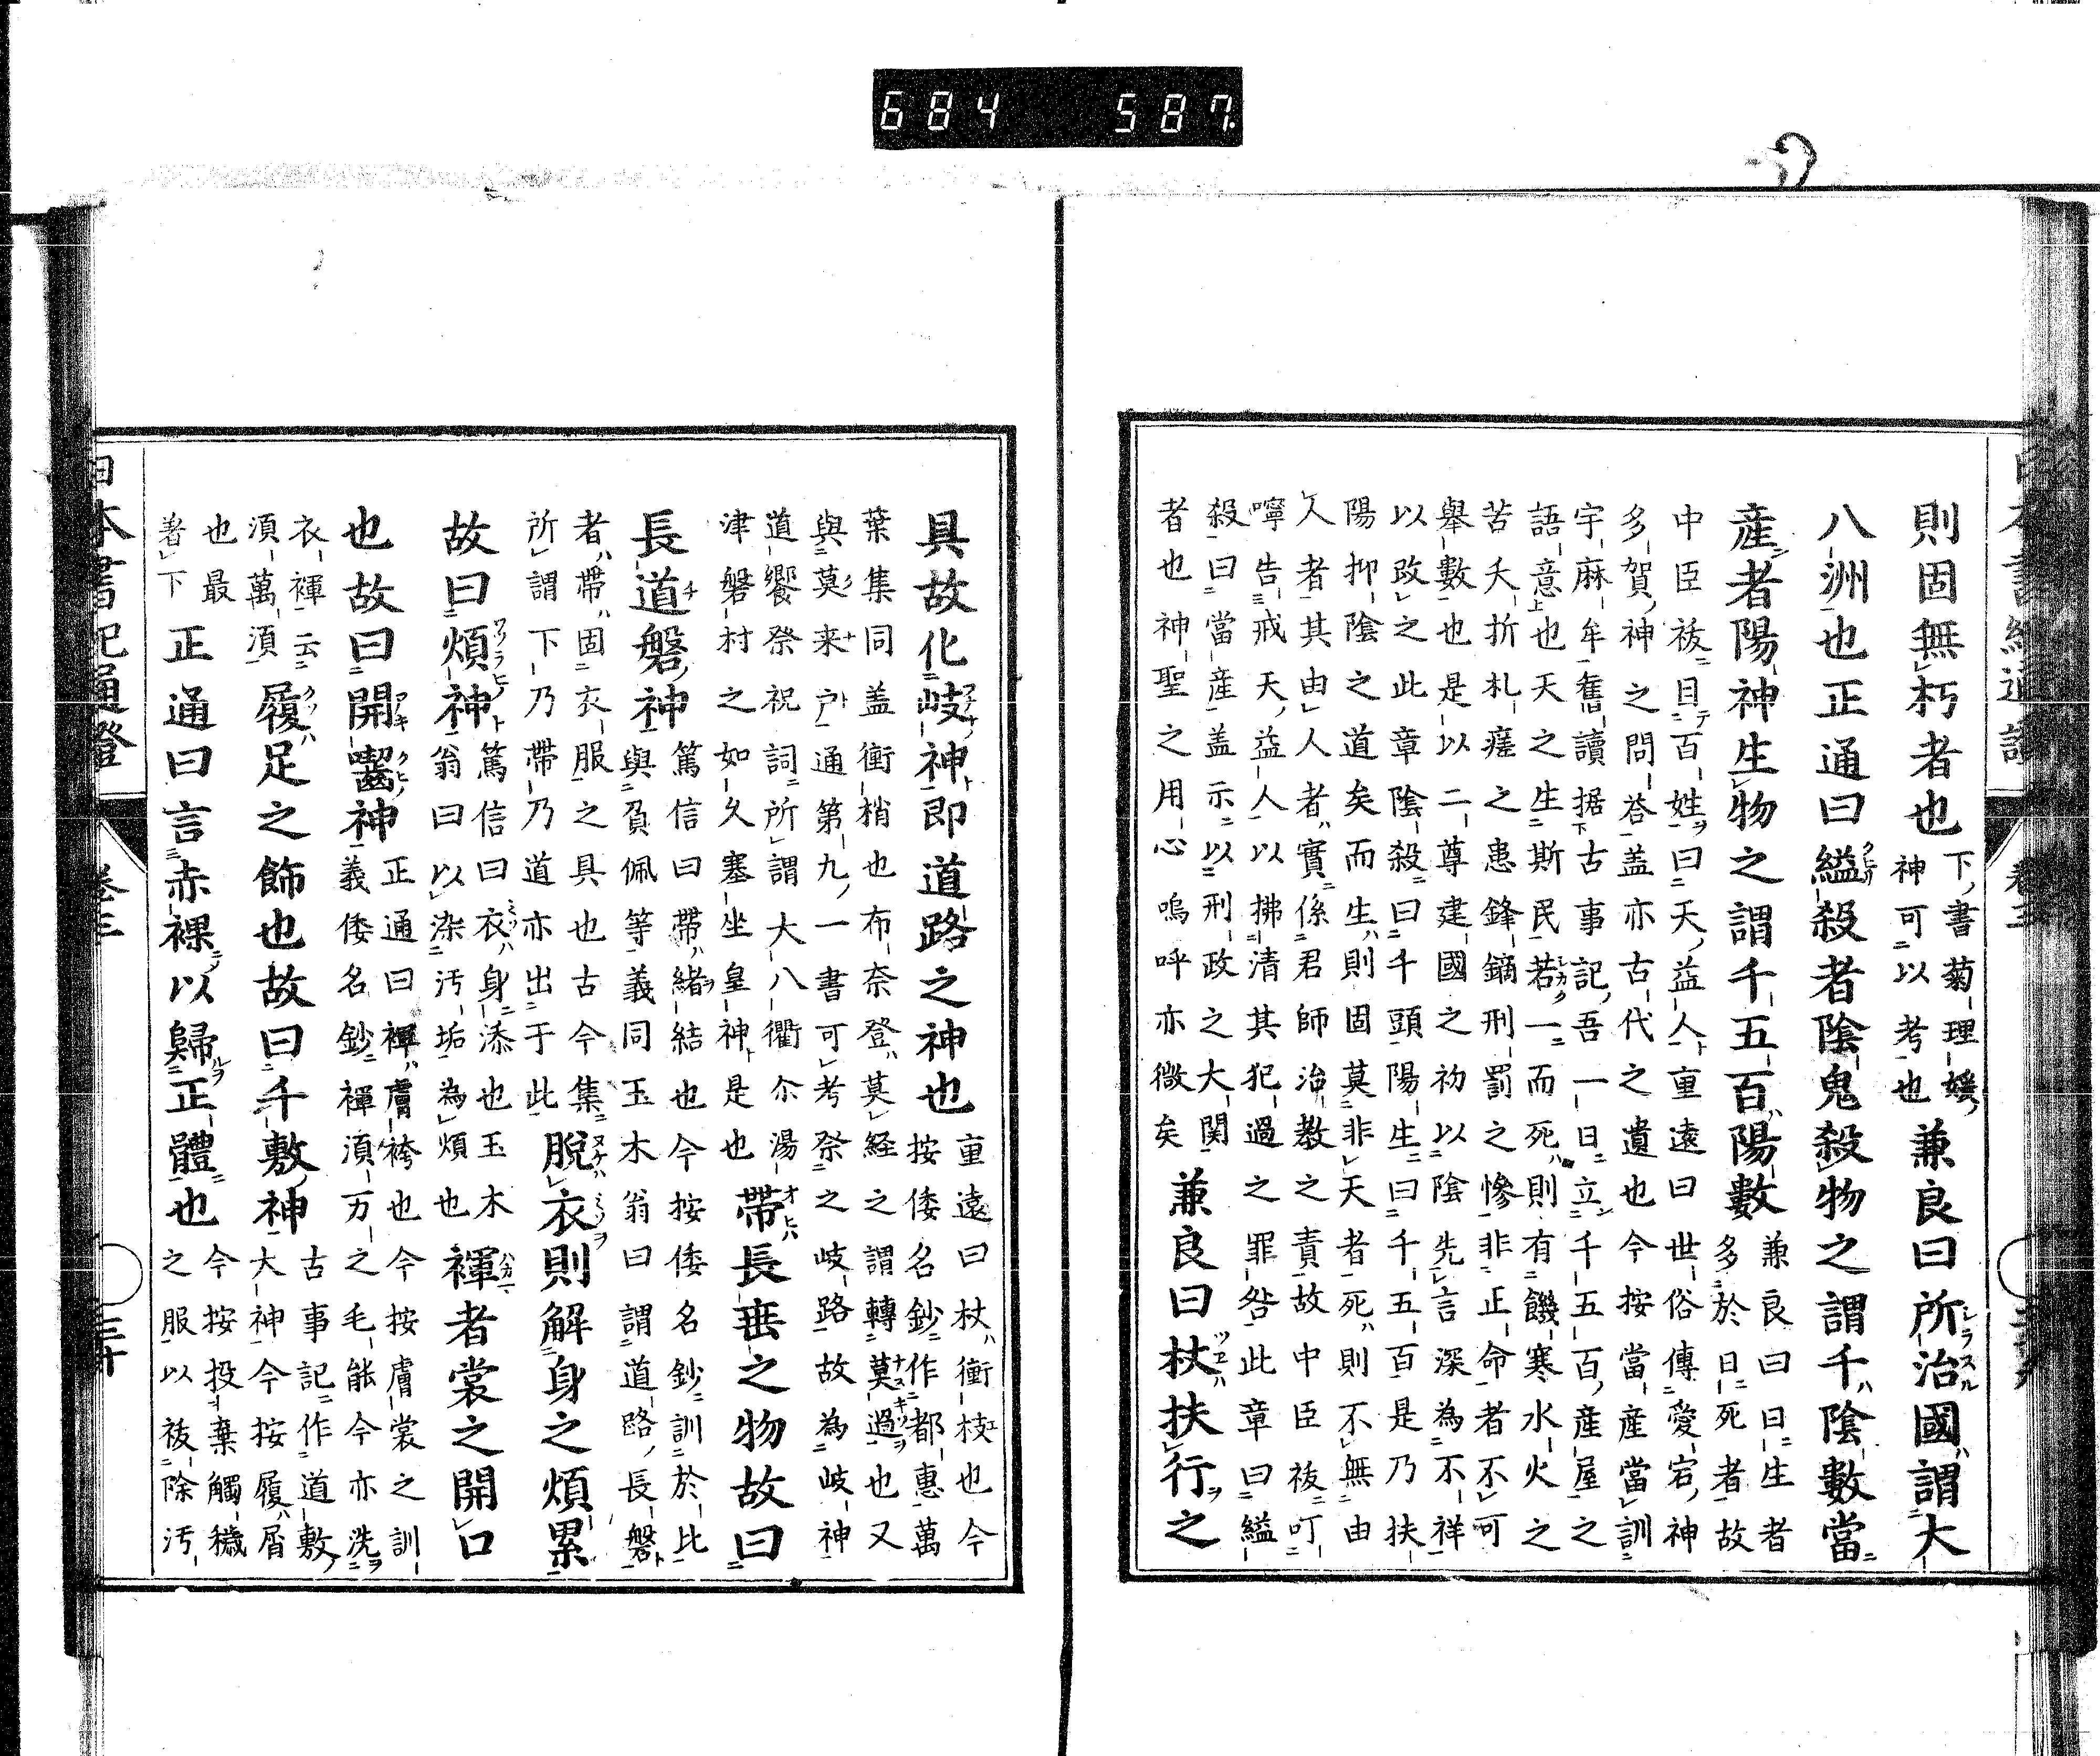 684 587
則固無朽者也下書菊理媛
神可以考也兼良曰所治國謂大
八洲也正通曰縊殺者陰鬼殺物之謂千陰數當
産者陽神生物之謂千五百陽數兼良曰日生者
多於日死者故
中臣祓目百姓曰天益人重遠曰世俗傳愛宕神
多賀神之問荅盖亦古代之遺也今按當産當訓
宇麻牟舊讀据古事記吾一日立千五百産屋之
語意也天之生斯民若一而死則有饑寒水火之
苦夭折札瘥之患鋒鏑刑罰之慘非正命者不可
舉數也是以二尊建國之初以陰先言深為不祥
以改之此章陰殺曰千頭陽生曰千五百是乃扶
陽抑陰之道矣而生則固莫非天者死則不無由
人者其由人者實係君師治教之責故中臣祓叮
嚀告戒天益人以拂清其犯過之罪咎此章曰縊
殺曰當産盖示以刑政之大関
者也神聖之用心嗚呼亦微矣兼良曰杖扶行之
具故化岐神即道路之神也重遠曰杖衝枝也今
按倭名鈔作都惠萬
葉集同盖衝梢也布奈登莫経之謂轉莫過也又
與莫来戸通第九一書可考祭之岐路故為岐神
道饗祭祝詞所謂大八衢尒湯
津磐村之如久塞坐皇神是也帶長垂之物故曰
長道磐神篤信曰帶緒結也今按倭名鈔訓於比
與負佩等義同玉木翁曰謂道路長磐
者帶固衣服之具也古今集
所謂下乃帶乃道亦出于此脫衣則解身之煩累
故曰煩神篤信曰衣身添也玉木
翁曰以染汚垢為煩也褌者裳之開口
也故曰開囓神正通曰褌膚袴也今按膚裳之訓
義倭名鈔褌湏万之毛能今亦洗
衣褌云
湏萬湏履足之飾也故曰千敷神古事記作道敷
大神今按履屑
也最
着下正通曰言赤裸以歸正體也今按投棄觸穢
之服以祓除汚
日本書紀通證
卷三
三十